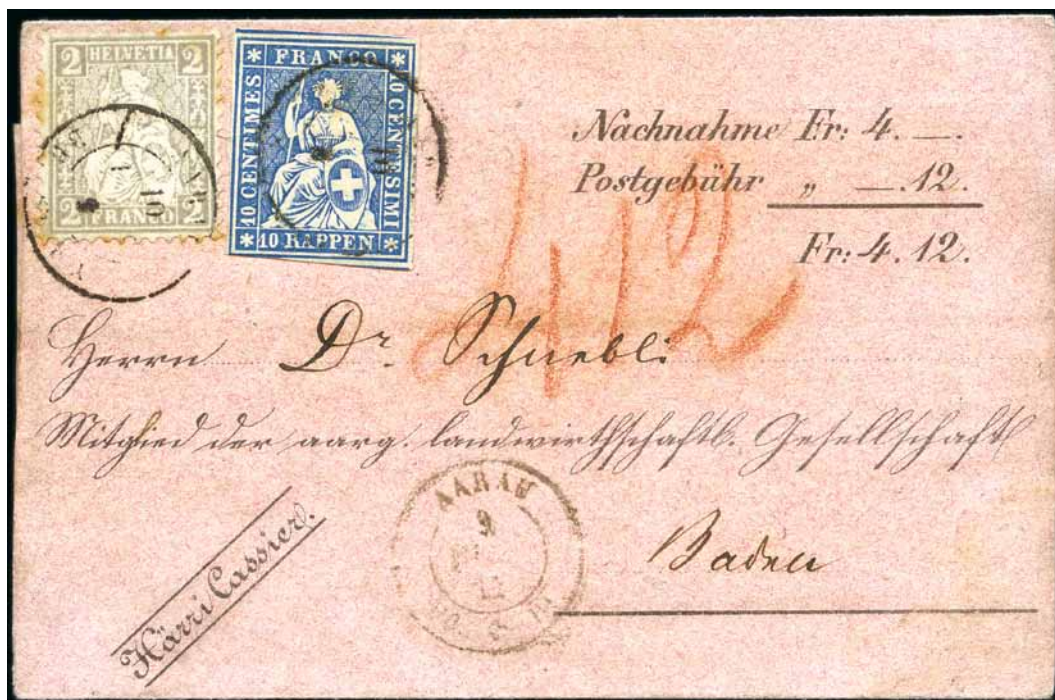 2 HELVETIA 2
2 FRANCO 2
FRANCO
10 CENTIMES
10 CENTESIMI
10 RAPPEN
10
10
Nachnahme Fr: 4. —.
Postgebühr „ —.12.
Fr: 4. 12.
412
Herrn Dr. Schnebli
Mitglied der aarg. landwirthschaftl. Gesellschaft
Baden
AARAU
9
Härri Cassier.